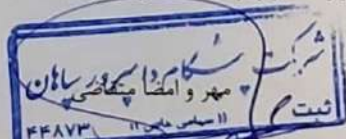 شرکت پیشگام دامپرور پاهان
مهر و امضا متقاضی
(( سهامی خاص ))
ثبت ۴۴۸۷۳